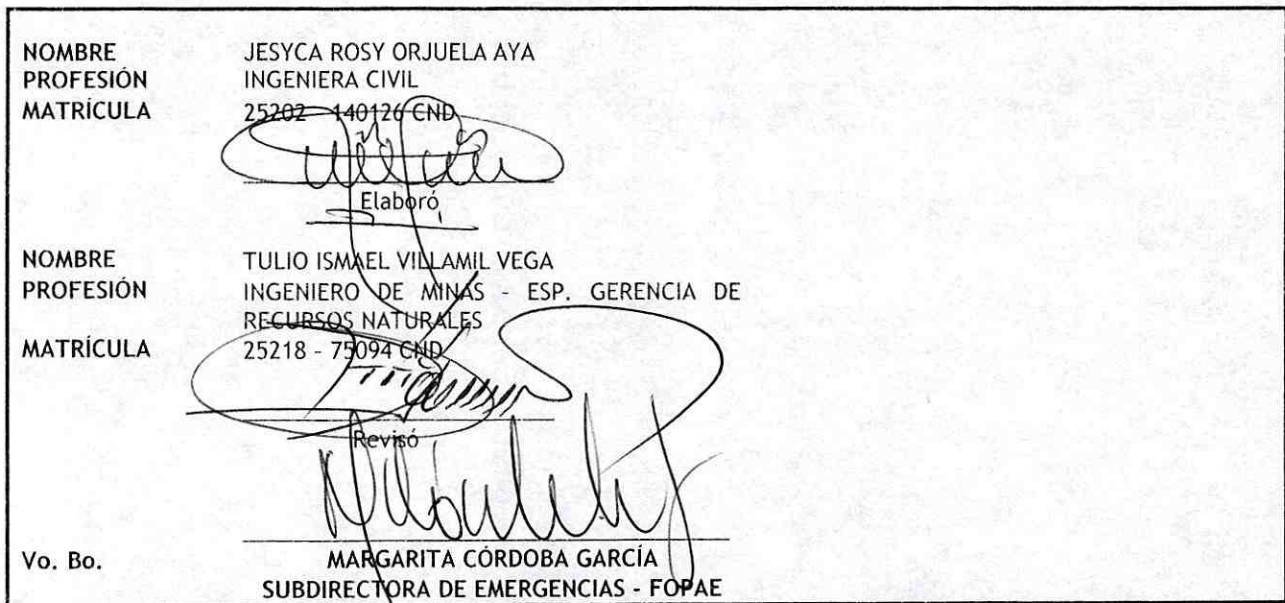 NOMBRE JESYCA ROSY ORJUELA AYA
PROFESIÓN INGENIERA CIVIL
MATRÍCULA 25202 - 140126 CND
Elaboró
NOMBRE TULIO ISMAEL VILLAMIL VEGA
PROFESIÓN INGENIERO DE MINAS - ESP. GERENCIA DE
RECURSOS NATURALES
MATRÍCULA 25218 - 75094 CND
Revisó
Vo. Bo. MARGARITA CÓRDOBA GARCÍA
SUBDIRECTORA DE EMERGENCIAS - FOPAE